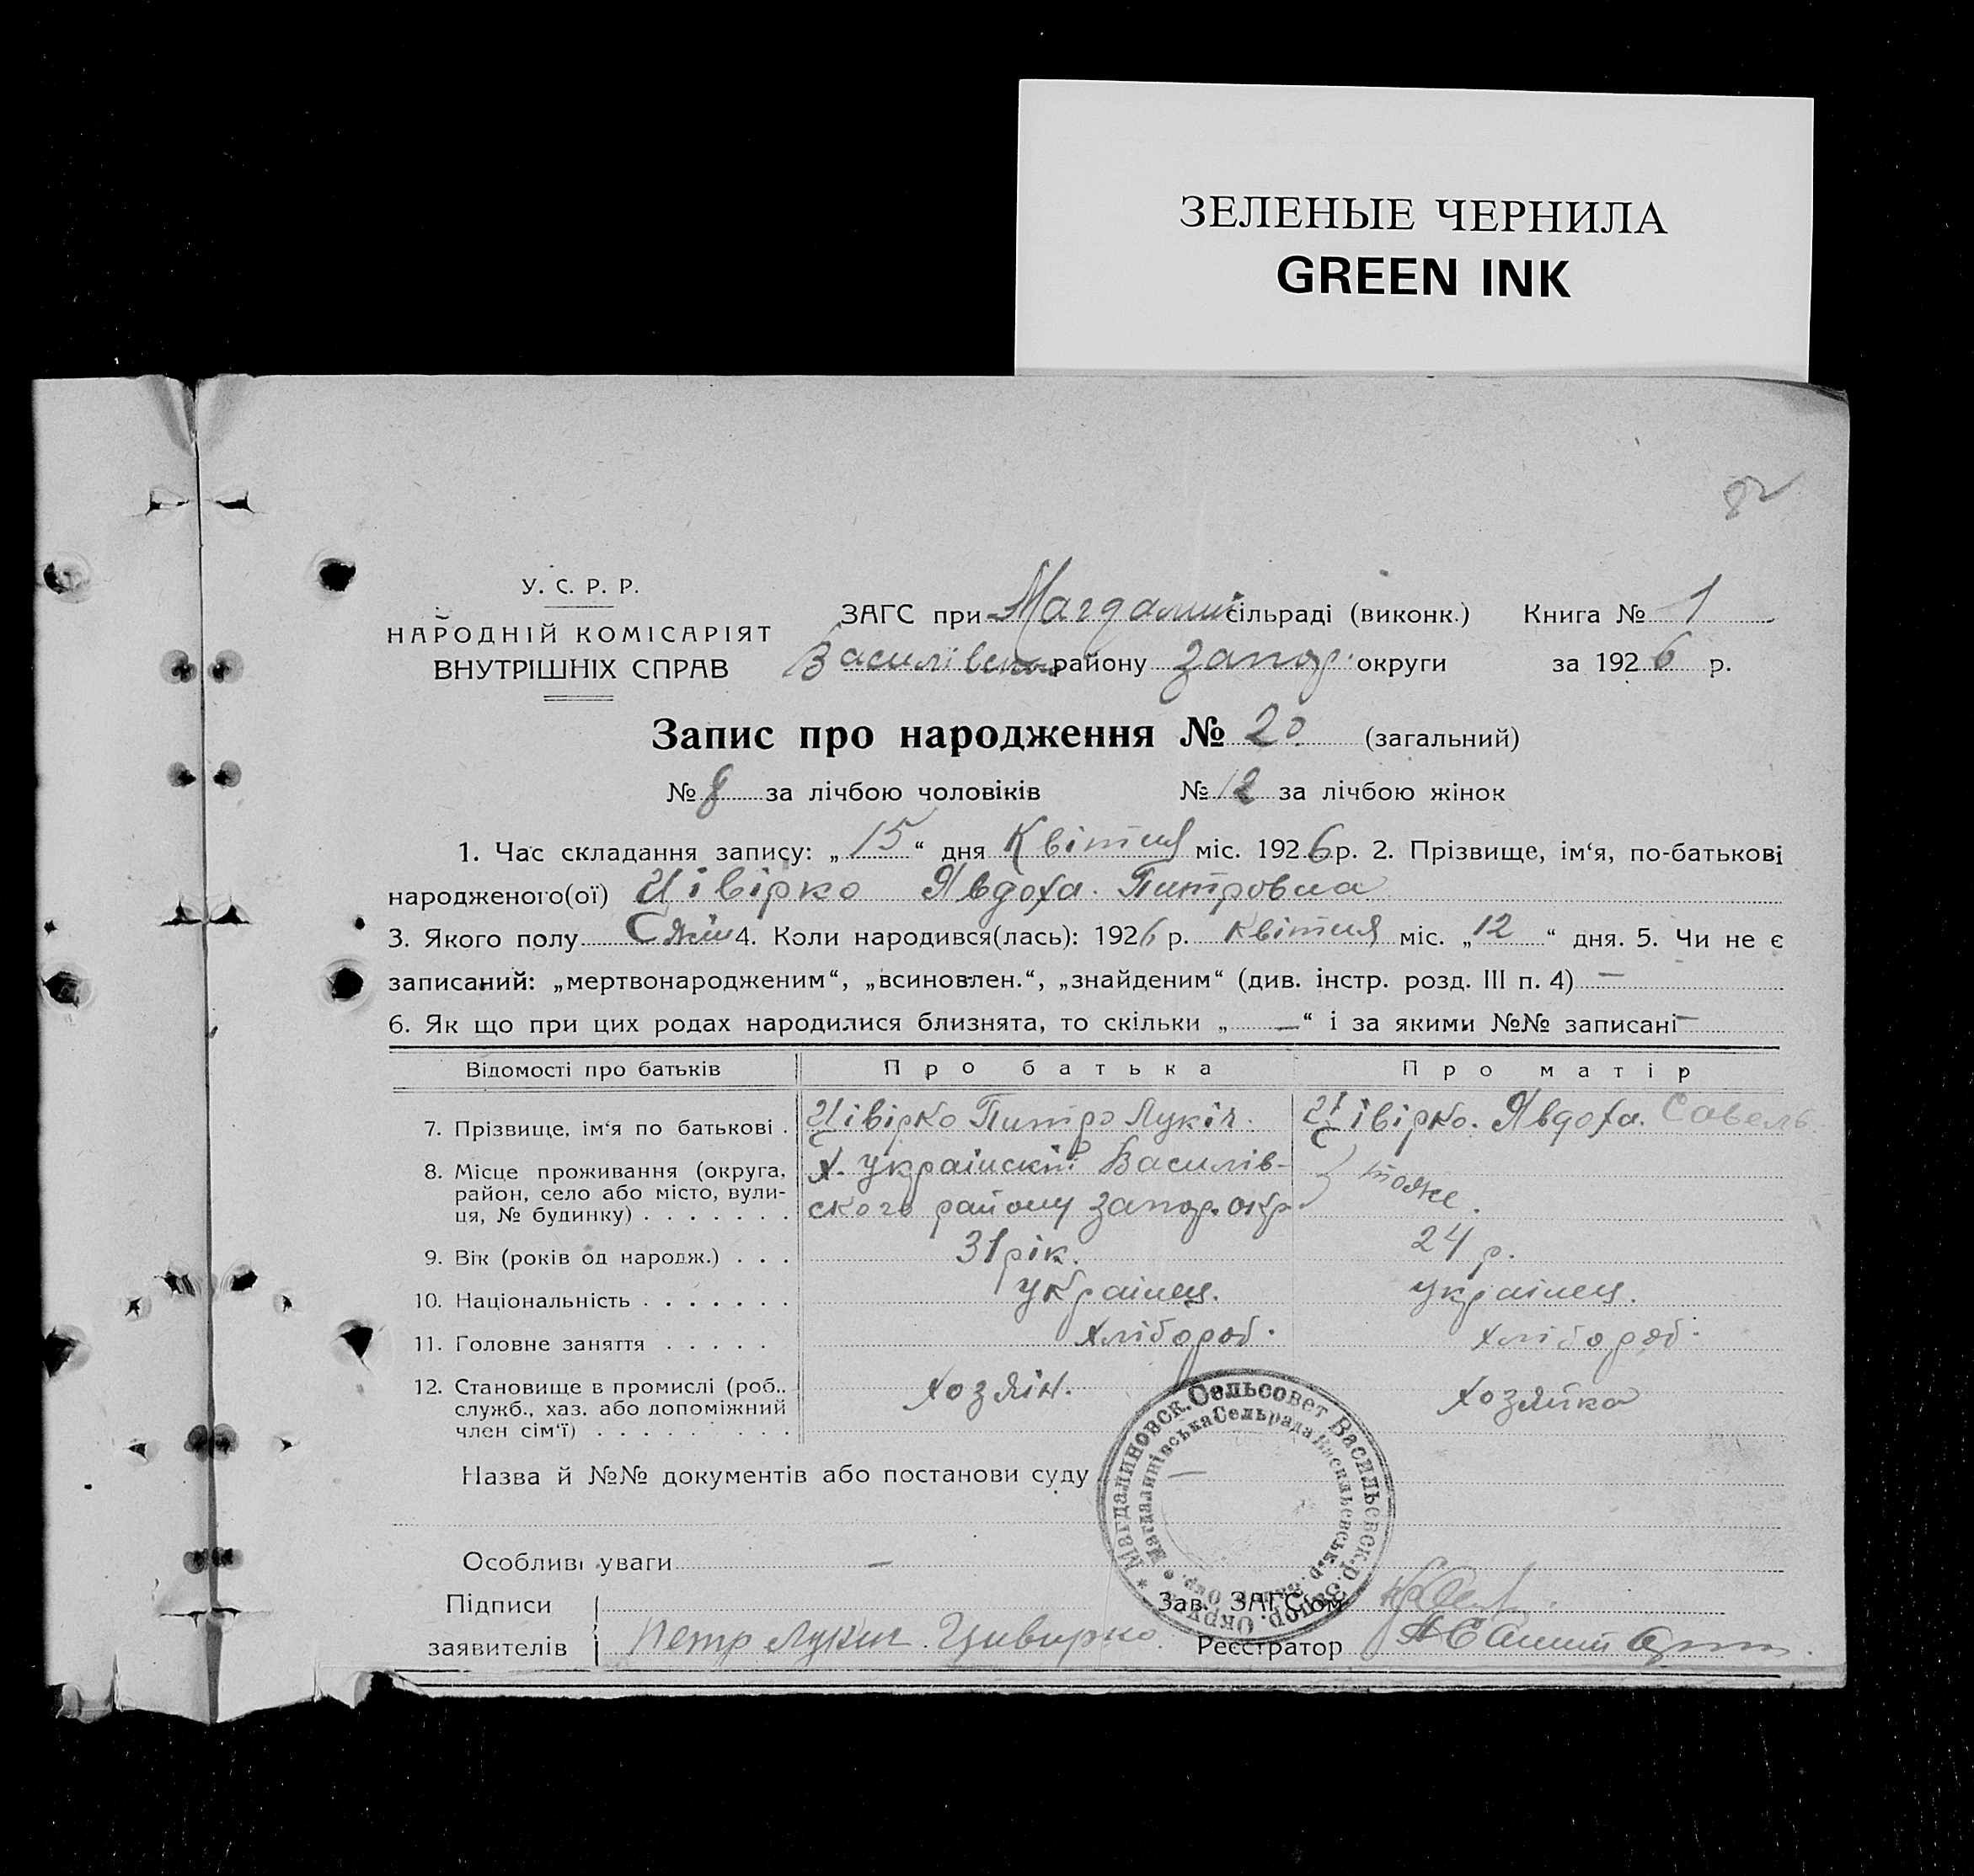 ЗЕЛЕНЫЕ ЧЕРНИЛА
GREEN INK
82
У. С. Р. Р.
НАРОДНІЙ КОМІСАРІЯТ
ВНУТРІШНІХ СПРАВ
ЗАГС при Магдалин сільраді (виконк.) Книга № 1
Василівськ району Запор. округи за 1926 р.
Запис про народження № 20 (загальний)
№ 8 за лічбою чоловіків № 12 за лічбою жінок
1. Час складання запису: „15“ дня Квітня міс. 1926 р. 2. Прізвище, ім‘я, по-батькові
народженого(ої) Цівірко Явдоха. Питровна
3. Якого полу 4. Коли народився(лась): 1926 р. Квітня міс. „12“ дня. 5. Чи не є
записаний: „мертвонародженим“, „всиновлен.“, „знайденим“ (див. інстр. розд. III п. 4) —
6. Як що при цих родах народилися близнята, то скільки „—“ і за якими №№ записані —
Відомості про батьків Про батька Про матір
7. Прізвище, ім‘я по батькові . Цівірко Питро Лукіч. Цівірко. Явдоха. Савель
8. Місце проживання (округа, район, село або місто, вулиця, № будинку) . . . . . . .
х. українскій Василів-
ского району Запор. окр. тоже.
9. Вік (років од народж.) . . . 31 рік. 24 р.
10. Національність . . . . . . . українец. українец.
11. Головне заняття . . . . . хлібороб. хлібороб.
12. Становище в промислі (роб., служб., хаз. або допоміжний член сім‘ї) . . . . . . . . . хозяін. хозяйка
Назва й №№ документів або постанови суду —
Особливі уваги —
Підписи
заявителів Петр Лукич Цивирко.
Зав. ЗАГС‘ом
Реєстратор
* Магдалиновск. Сельсовет Васильевск. р. Запор. Округ
Магдалинівська Сельрада Васильевськ. р. Окр.